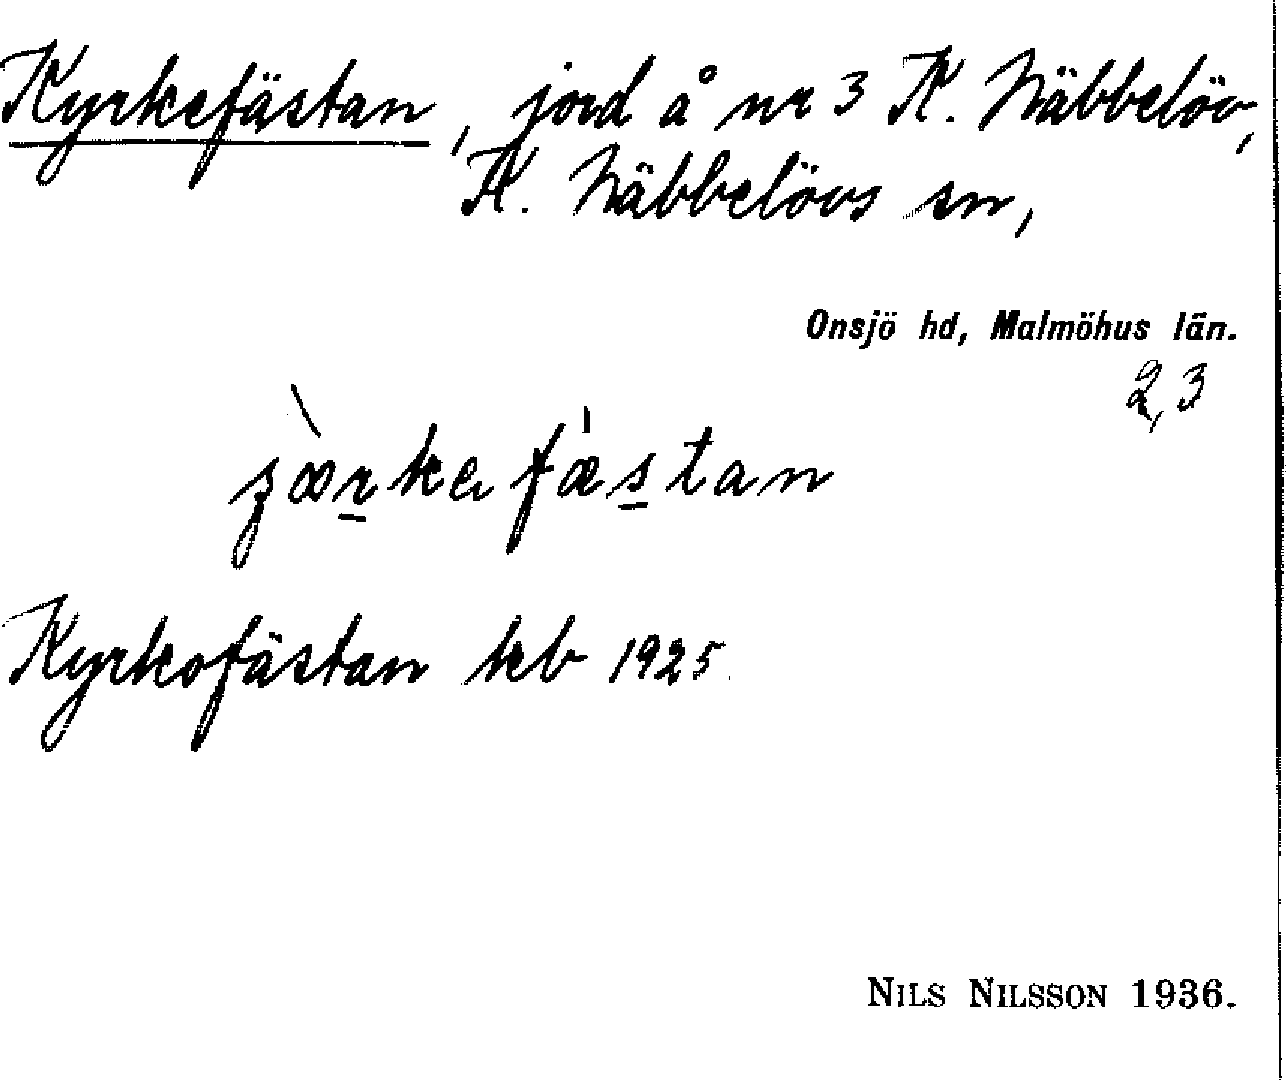 Kyrkefästan, jord å nr 3 K. Näbbelöv,
K. Näbbelövs sn,
Onsjö hd, Malmöhus län.
2,3
Kyrkofästan kb 1925
NILS NILSSON 1936.